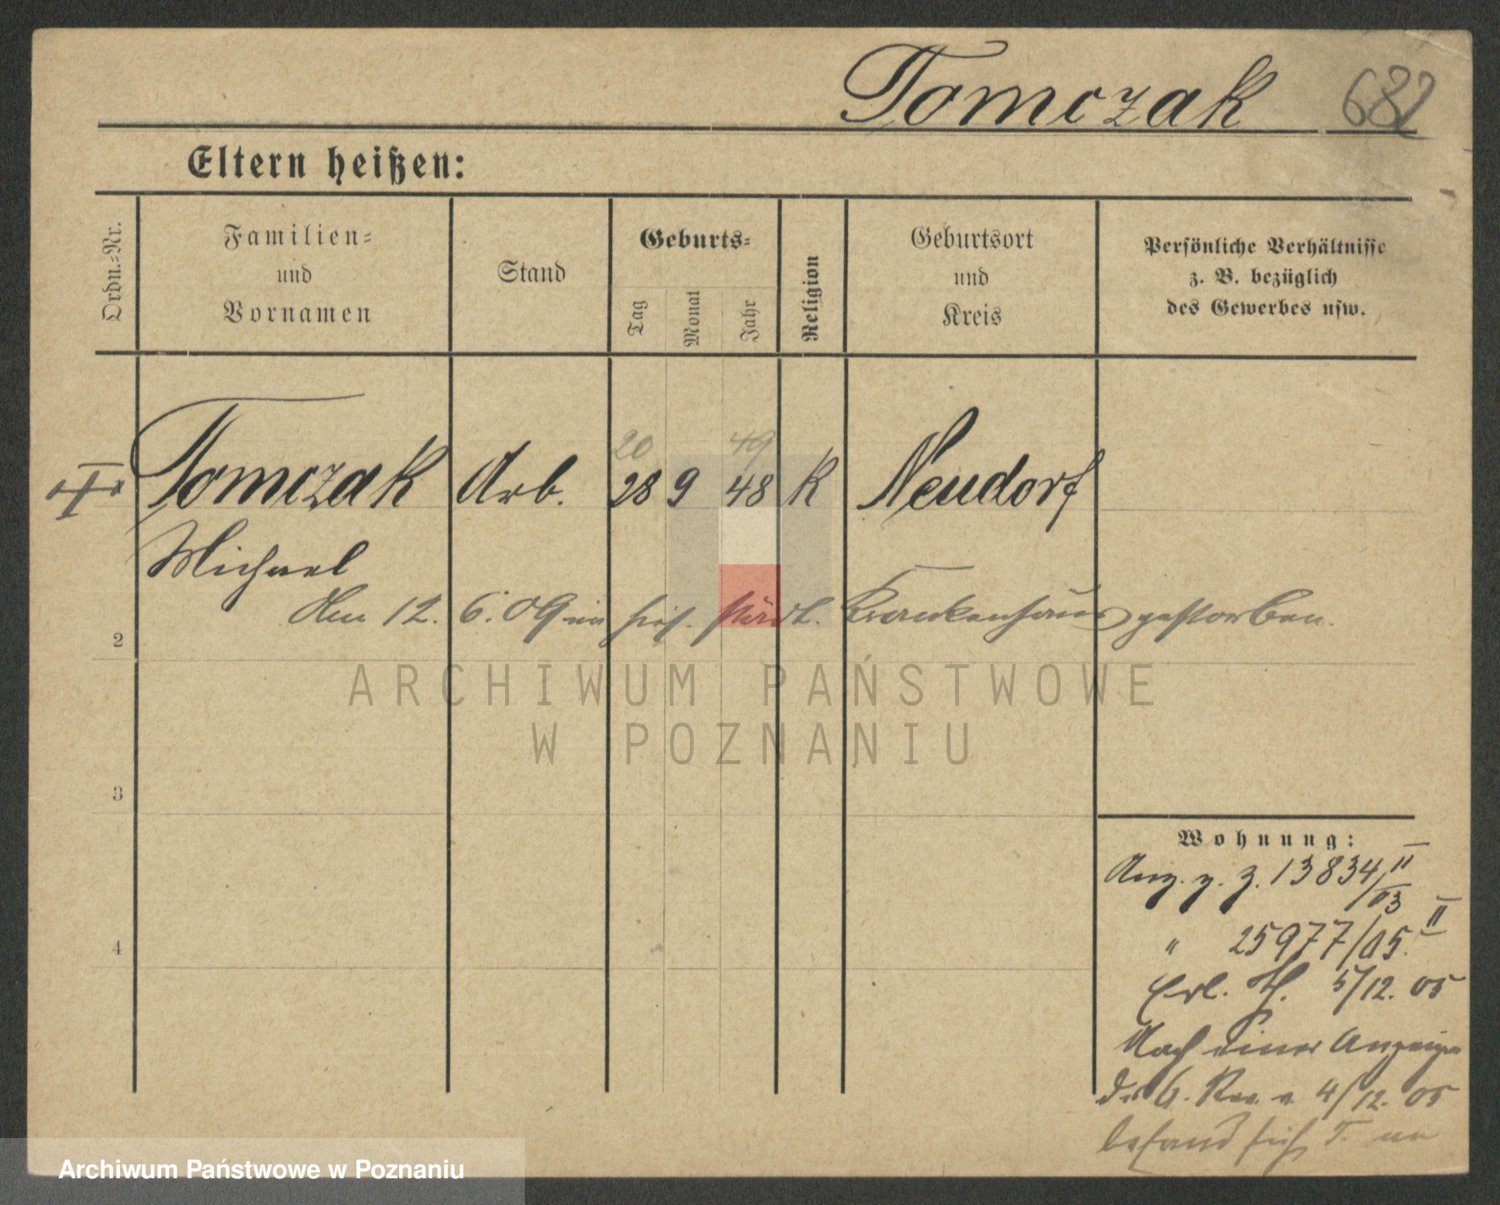 Tomczak 682
Eltern heißen:
Ordn.=Nr.
Familien=
und
Vornamen
Stand
Geburts=
Tag
Monat
Jahr
Religion
Geburtsort
und
Kreis
Persönliche Verhältnisse
z. B. bezüglich
des Gewerbes usw.
20 49
Tomczak Arb. 28 9 48 K Neudorf
Michael
Am 12. 6. 09 im hies. städt. Krankenhaus gestorben.
2
ARCHIWUM PAŃSTWOWE
W POZNANIU
3
4
Wohnung:
Anz. z. Z. 13834 II/03
" 25977/05. II
Erl. 5/12. 05
Nach einer Anzeige
d. 6. Rev. v. 4/12. 05
befand sich T.
Archiwum Państwowe w Poznaniu